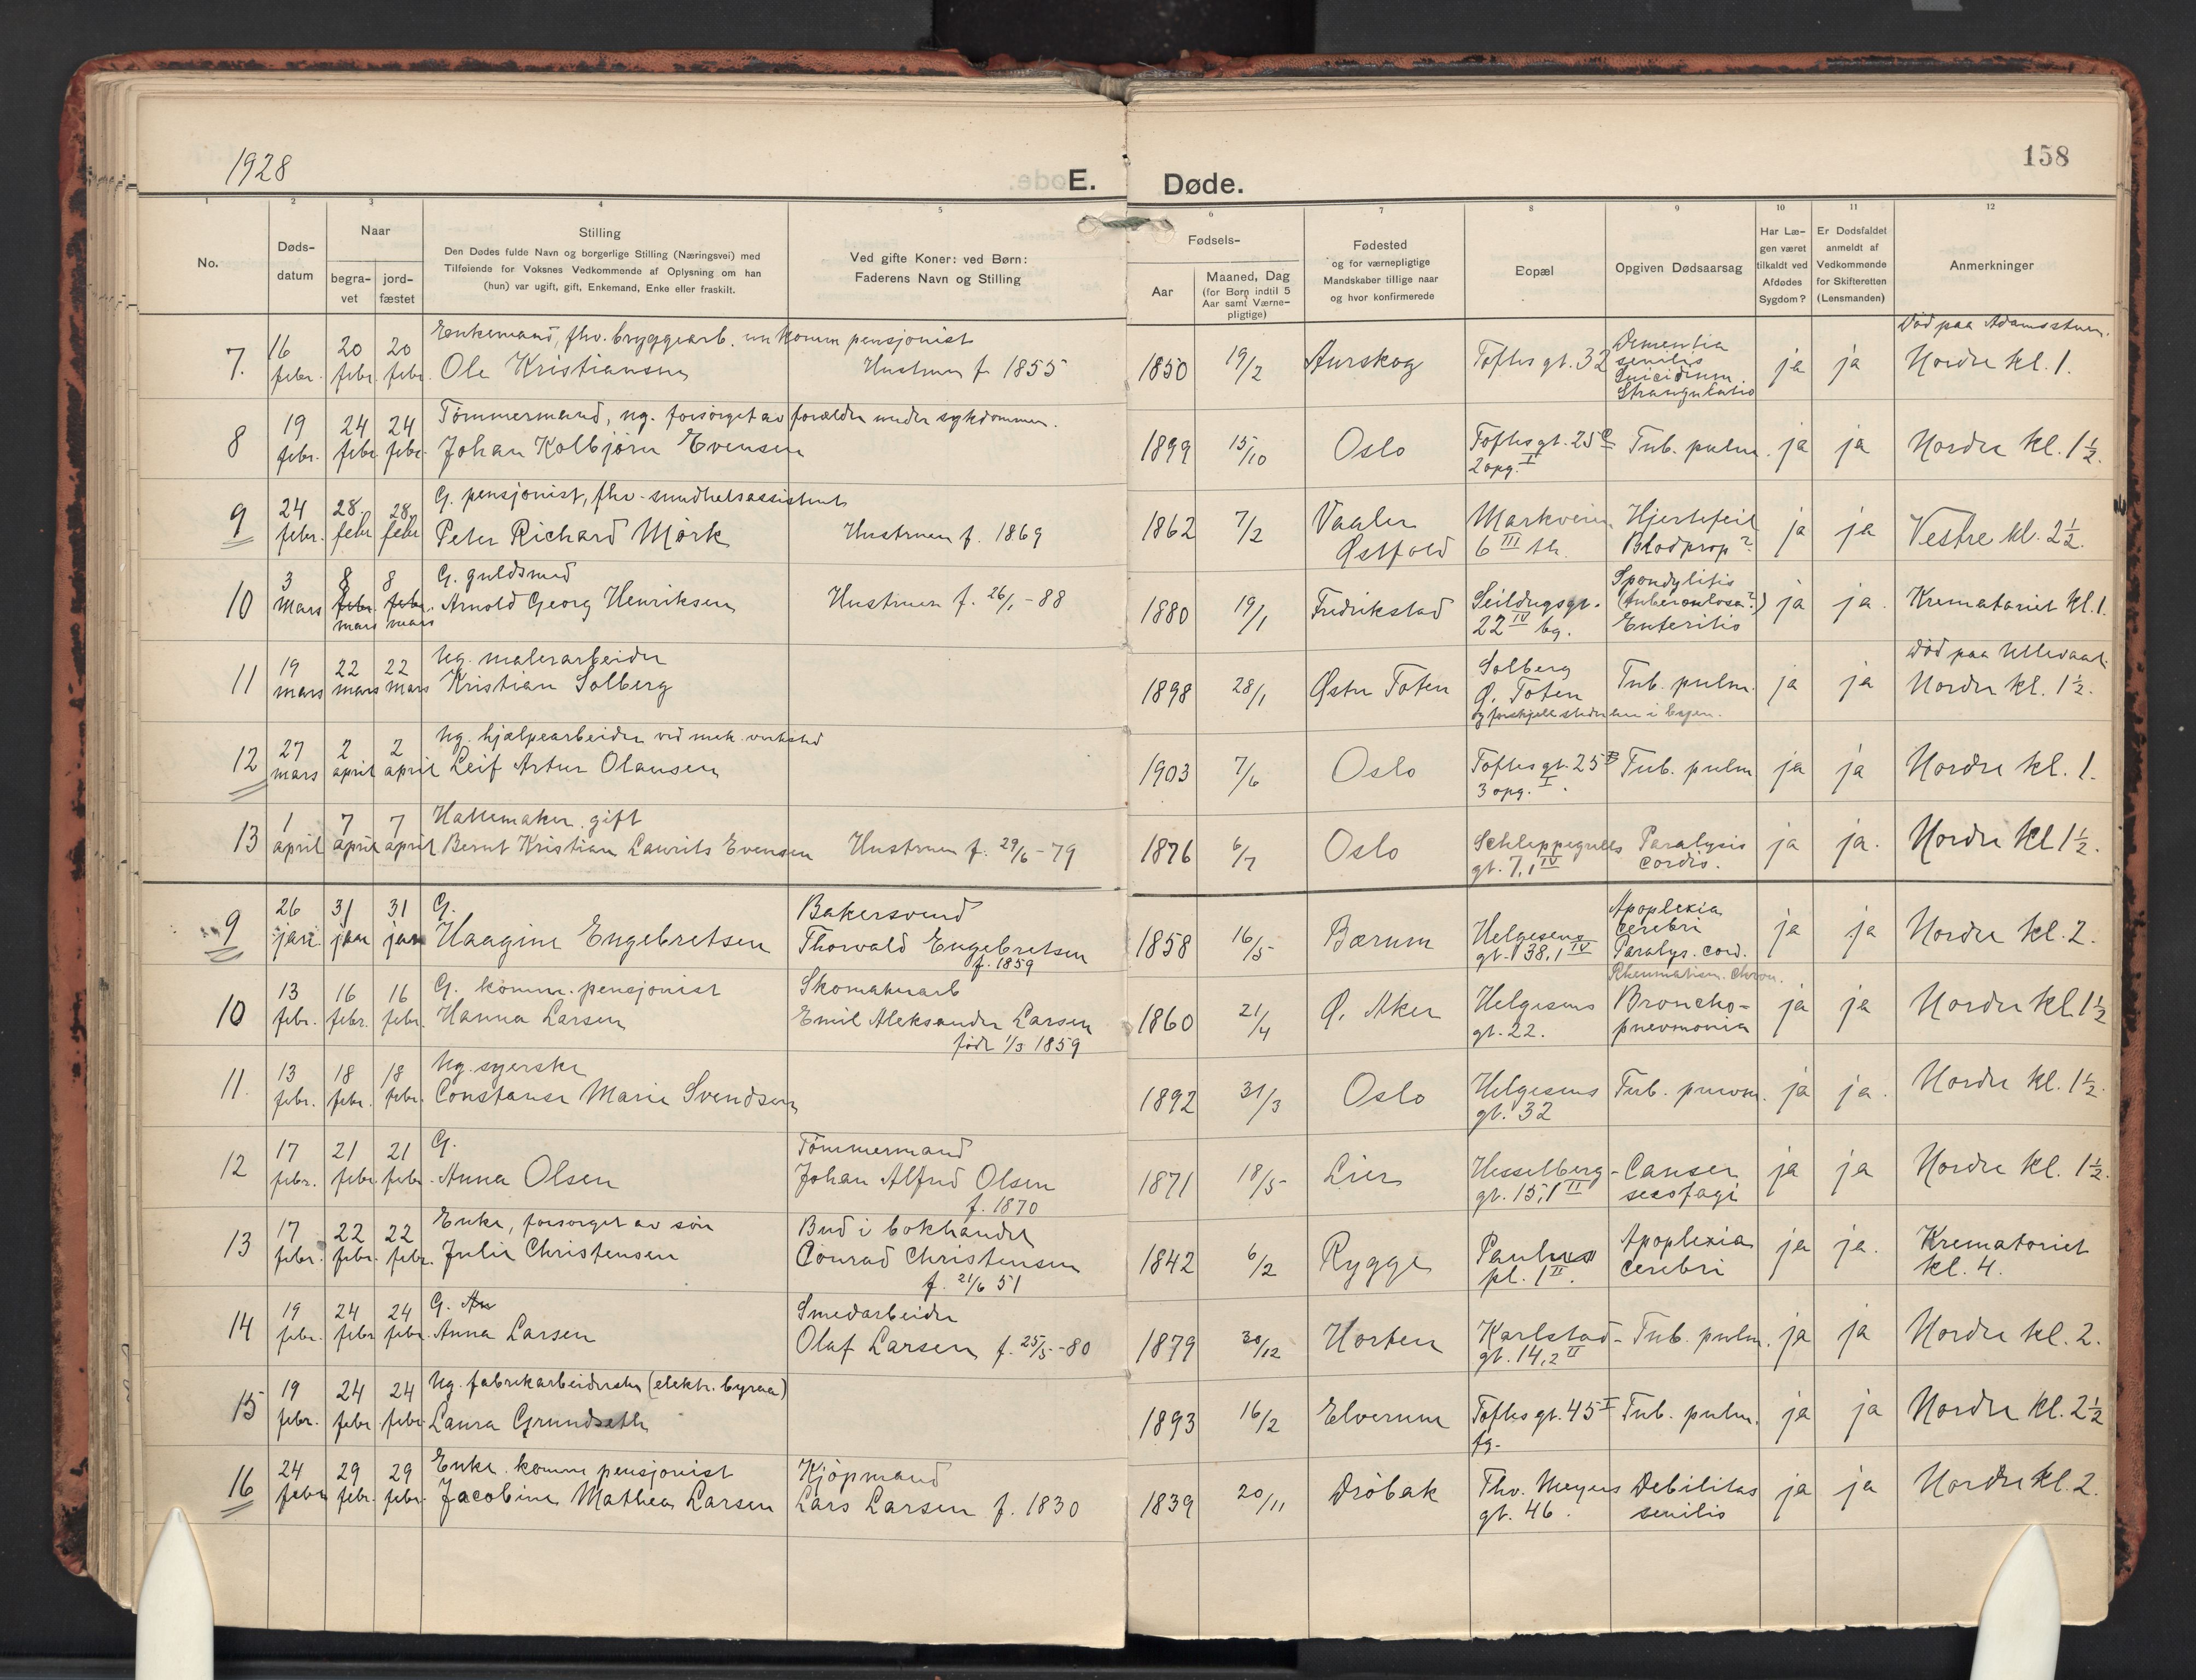 1928
E. Døde.
158
1 2 3 4 5 6 7 8 9 10 11 12
No.
Døds-
datum
Naar
begra-
vet
jord-
fæstet
Stilling
Den Dødes fulde Navn og borgerlige Stilling (Næringsvei) med
Tilføiende for Voksnes Vedkommende af Oplysning om han
(hun) var ugift, gift, Enkemand, Enke eller fraskilt.
Ved gifte Koner: ved Børn:
Faderens Navn og Stilling
Fødsels-
Aar
Maaned, Dag
(for Børn indtil 5
Aar samt Værne-
pligtige)
Fødested
og for værnepligtige
Mandskaber tillige naar
og hvor konfirmerede
Bopæl
Opgiven Dødsaarsag
Har Læ-
gen været
tilkaldt ved
Afdødes
Sygdom?
Er Dødsfaldet
anmeldt af
Vedkommende
for Skifteretten
(Lensmanden)
Anmerkninger
Enkemand, fhv. bryggearb. komm pensjonist Dementia Død paa Adamsstuen.
7. 16 febr. 20 febr. 20 febr. Ole Kristiansen Hustruen f. 1855 1850 19/2 Aurskog Toftes gt. 32 senilis ja ja Nordre kl. 1.
Suicidium
Strangulatio
Tømmermand, ug. forsørget av forældre under sykdommen.
8 19 febr. 24 febr. 24 febr. Johan Kolbjørn Evensen 1899 15/10 Oslo Toftes gt. 25 c Tub. pulm. ja ja Nordre kl. 1½.
2 opg. I
G. pensjonist, fhv. sundhetsassistent
9 24 febr. 28 febr 28 febr Peter Richard Mørk Hustruen f. 1869 1862 7/2 Vaaler Markveien Hjertefeil ja ja Vestre kl. 2½.
Østfold 6 III th. Blodprop?
G. guldsmed Spondylitis
10 3 mars 8 febr. mars 8 febr. mars Arnold Georg Henriksen Hustruen f. 26/1-88 1880 19/1 Fredrikstad Seildugsgt. (tuberculosa?) ja ja. Krematoriet kl. 1.
22 IV bg. Enteritis
Ug. malerarbeider Solberg Død paa Ullevaal.
11 19 mars 22 mars 22 mars Kristian Solberg 1898 28/1 Østre Toten Ø. Toten Tub. pulm. ja ja Nordre kl. 1½.
og forskjell. steder her i byen.
Ug. hjælpearbeider ved mek. verksted
12 27 mars 2 april 2 april Leif Artur Olausen 1903 7/6 Oslo Toftes gt. 25 B Tub. pulm ja ja Nordre kl. 1.
3 opg. I.
Hattemaker. gift
13 1 april 7 april 7 april Bernt Kristian Laurits Evensen Hustruen f. 29/6-79 1876 6/7 Oslo Schleppegrells Paralysis ja ja. Nordre kl 1½.
gt. 7, 1 IV cordis.
G. Bakersvend Apoplexia
9 26 jan. 31 jan 31 jan Haagine Engebretsen Thorvald Engebretsen 1858 16/5 Bærum Helgesens cerebri ja ja Nordre kl. 2.
f. 1859 gt. 38, 1 IV Paralys. cord.
G. komm. pensjonist Skomakerarb Rheumatism. chron.
10 13 febr. 16 febr. 16 febr. Hanna Larsen Emil Aleksander Larsen 1860 21/4 Ø. Aker Helgesens Broncho- ja ja Nordre kl. 1½
født 1/3 1859 gt. 22. pnevmonia
Ug. syerske
11. 13 febr. 18 febr. 18 febr. Constanse Marie Svendsen 1892 31/3 Oslo Helgesens Tub. ja ja. Nordre kl. 1½.
gt. 32
G. Tømmermand
12 17 febr. 21 febr 21 febr. Anna Olsen Johan Alfred Olsen 1871 18/5 Lier Hesselberg- Canser ja ja Nordre kl. 1½.
f. 1870 gt. 15, 1 II
Enke, forsørget av søn Bud i bokhandel
13 17 febr. 22 febr. 22 febr. Julie Christensen Conrad Christensen 1842 6/2 Rygge Paulus Apoplexia ja ja. Krematoriet
f. 21/6 51 pl. 1 II. cerebri kl. 4.
G. An Smedarbeider
14 19 febr. 24 febr 24 febr. Anna Larsen Olaf Larsen f. 25/5-80 1879 30/12 Horten Karlstad- Tub. pulm. ja ja Nordre kl. 2.
gt. 14, 2 II
Ug. fabrikarbeiderske (elektr. byraa)
15 19 febr. 24 febr. 24 febr. Laura Grundseth 1893 16/2 Elverum Toftes gt. 45 I Tub. pulm. ja ja Nordre kl. 2½
fg.
Enke. komm pensjonist Kjøpmand
16 24 febr 29 febr. 29 febr. Jacobine Mathea Larsen Lars Larsen f. 1830 1839 20/11 Drøbak Thv. Meyers Debilitas ja ja Nordre kl. 2.
gt. 46. senilis